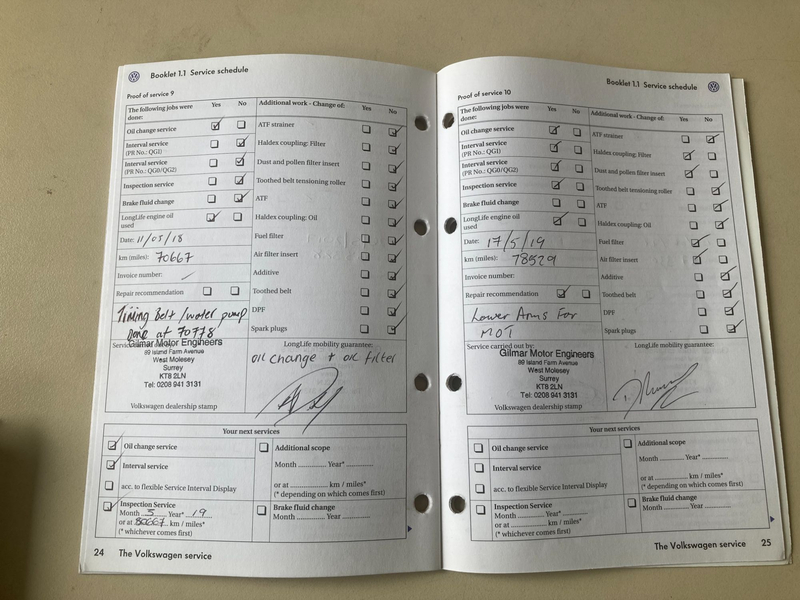 Booklet 1.1 Service schedule
Proof of service 9
The following jobs were done: Yes No
Oil change service
Interval service
(PR No.: QG1)
Interval service
(PR No.: QG0/QG2)
Inspection service
Brake fluid change
LongLife engine oil
used
Date: 11/05/18
km (miles): 70667
Invoice number:
Repair recommendation
Timing Belt / water pump
Done at 70778
Additional work - Change of: Yes No
ATF strainer
Haldex coupling: Filter
Dust and pollen filter insert
Toothed belt tensioning roller
ATF
Haldex coupling: Oil
Fuel filter
Air filter insert
Additive
Toothed belt
DPF
Spark plugs
Gilmar Motor Engineers
89 Island Farm Avenue
West Molesey
Surrey
KT8 2LN
Tel: 0208 941 3131
Volkswagen dealership stamp
LongLife mobility guarantee:
oil change + oil filter
Your next services
Oil change service
Interval service
acc. to flexible Service Interval Display
Inspection Service
Month 5 Year* 19
or at 80667 km / miles*
(* whichever comes first)
Additional scope
Month ............. Year* .............
or at ............. km / miles*
(* depending on which comes first)
Brake fluid change
Month ............. Year .............
24 The Volkswagen service
Booklet 1.1 Service schedule
Proof of service 10
The following jobs were done: Yes No
Oil change service
Interval service
(PR No.: QG1)
Interval service
(PR No.: QG0/QG2)
Inspection service
Brake fluid change
LongLife engine oil
used
Date: 17/5/19
km (miles): 78529
Invoice number:
Repair recommendation
Lower Arms For
MOT
Additional work - Change of: Yes No
ATF strainer
Haldex coupling: Filter
Dust and pollen filter insert
Toothed belt tensioning roller
ATF
Haldex coupling: Oil
Fuel filter
Air filter insert
Additive
Toothed belt
DPF
Spark plugs
Service carried out by:
Gilmar Motor Engineers
89 Island Farm Avenue
West Molesey
Surrey
KT8 2LN
Tel: 0208 941 3131
Volkswagen dealership stamp
LongLife mobility guarantee:
Your next services
Oil change service
Interval service
acc. to flexible Service Interval Display
Inspection Service
Month ............. Year* .............
or at ............. km / miles*
(* whichever comes first)
Additional scope
Month ............. Year* .............
or at ............. km / miles*
(* depending on which comes first)
Brake fluid change
Month ............. Year .............
The Volkswagen service 25